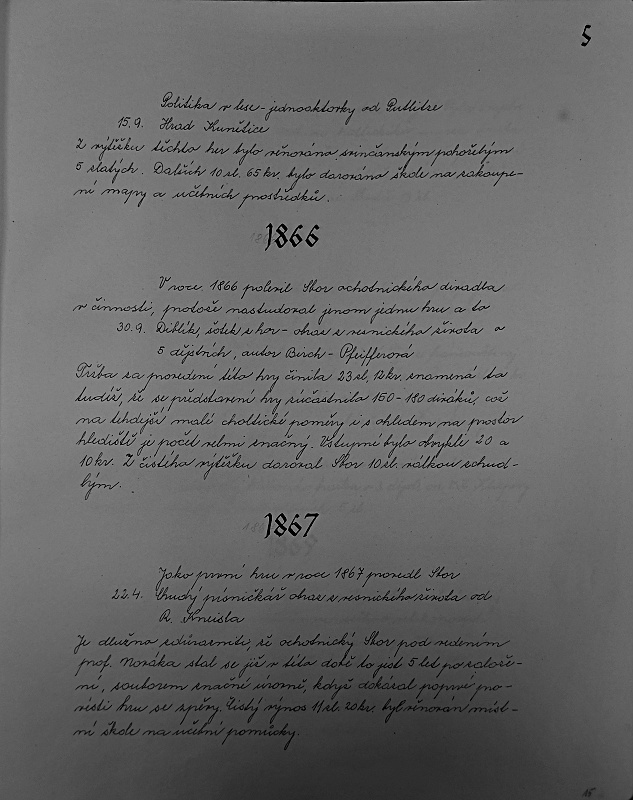 5
Politika v lese - jednoaktovky od Putlitze
15.9. Hrad Kunětice
Z výtěžku těchto her bylo věnováno svinčanským pohořelým
5 zlatých. Dalších 10 zl. 65 kr. bylo darováno škole na zakoupe-
ní mapy a učebních prostředků.
1866
V roce 1866 polevil Sbor ochotnického divadla
v činnosti, protože nastudoval jenom jednu hru a to
30.9. Diblík, šotek z hor - obraz z vesnického života o
5 dějstvích, autor Birch - Pfeifferová
Tržba za provedení této hry činila 23 zl, 12 kr. znamená to
tudíž, že se představení hry zúčastnilo 150 - 180 diváků, což
na tehdejší malé choltické poměry i s ohledem na prostor
hlediště je počet velmi značný. Vstupné bylo obvyklé 20 a
10 kr. Z čistého výtěžku daroval Sbor 10 zl. válkou zchud-
lým.
1867
Jako první hru v roce 1867 provedl Sbor
22.4. Chudý písničkář obraz z vesnického života od
R. Kneisla
Je dlužno zdůrazniti, že ochotnický Sbor pod vedením
prof. Nováka stal se již v této době to jest 5 let po založe-
ní, souborem značné úrovně, když dokázal poprvé pro-
vésti hru se zpěvy. Čistý výnos 11 zl. 20 kr. byl věnován míst-
ní škole na učební pomůcky.
15